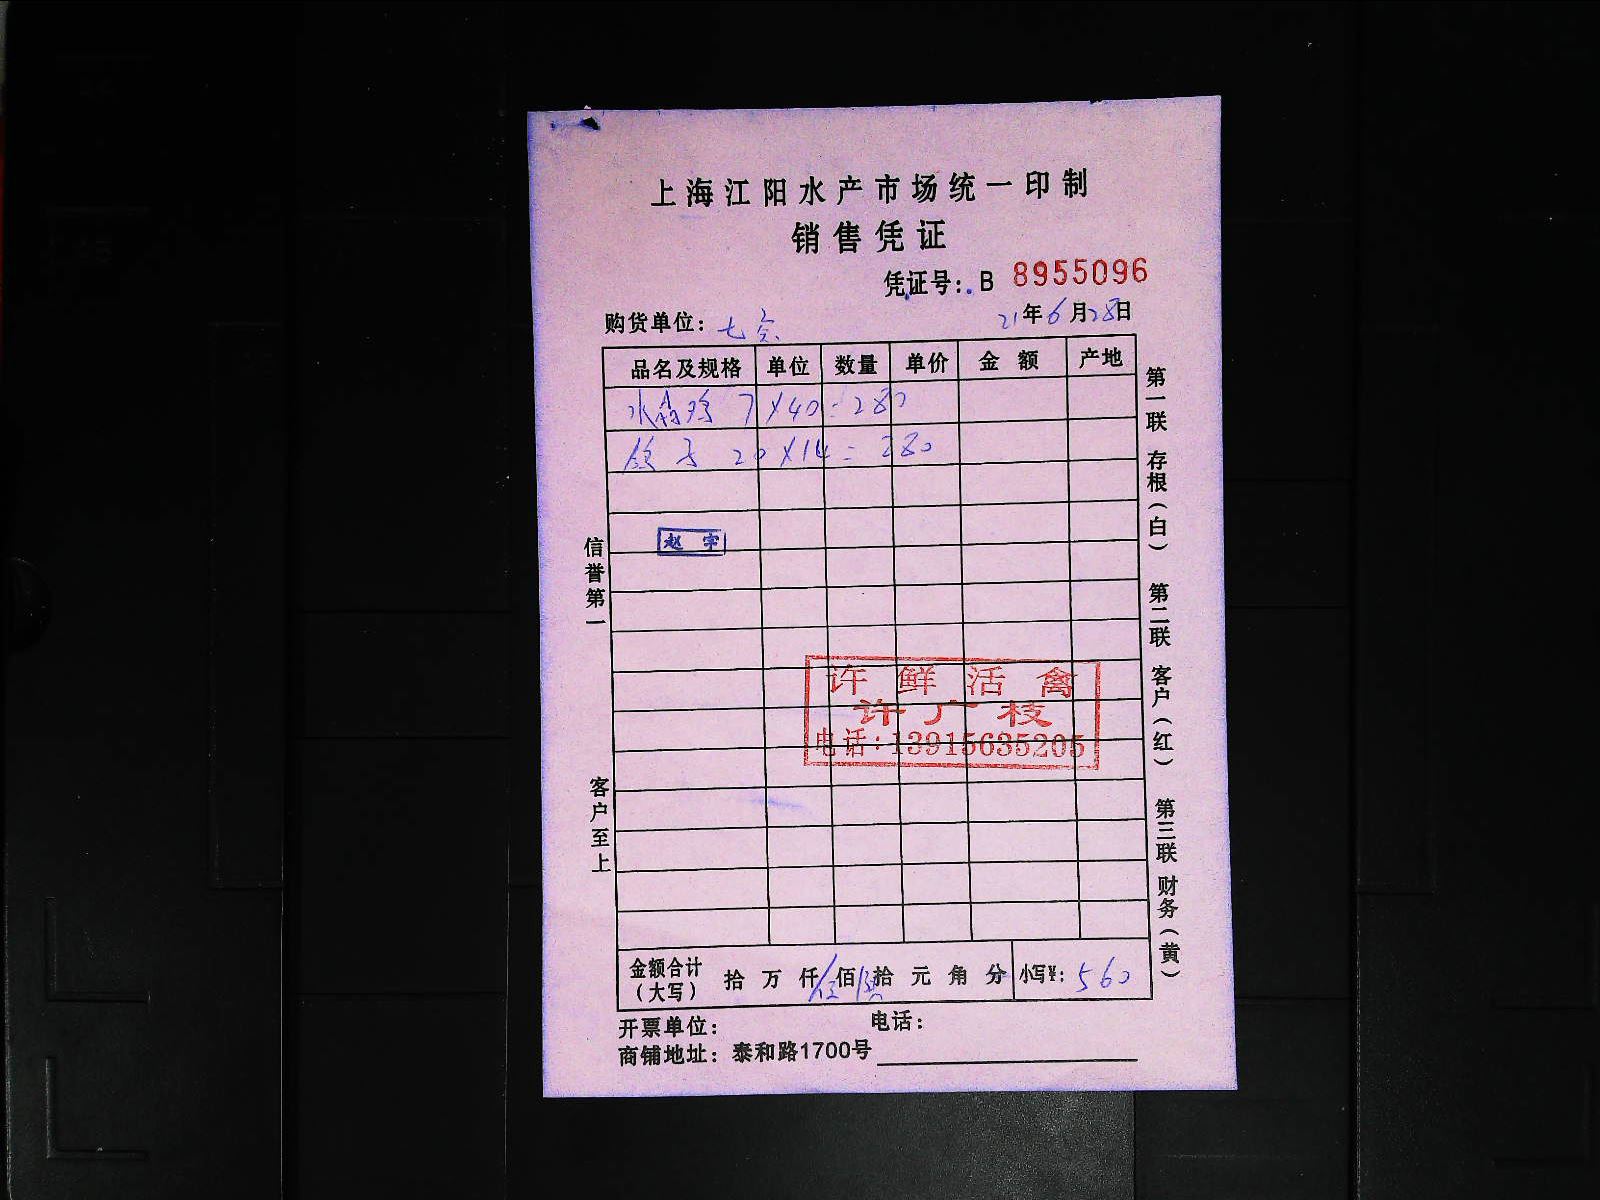 上海江阳水产市场统一印制
销售凭证
凭证号: B 8955096
购货单位: 七 21年6月28日
品名及规格 单位 数量 单价 金额 产地
水晶鸡 7×40=280
鸽子 20×14=280
赵宇
信誉第一
客户至上
许鲜活禽
许广枝
电话:13915635205
第一联 存根(白) 第二联 客户(红) 第三联 财务(黄)
金额合计(大写) 拾万仟伍佰陆拾元角分 小写¥: 560
开票单位: 电话:
商铺地址: 泰和路1700号